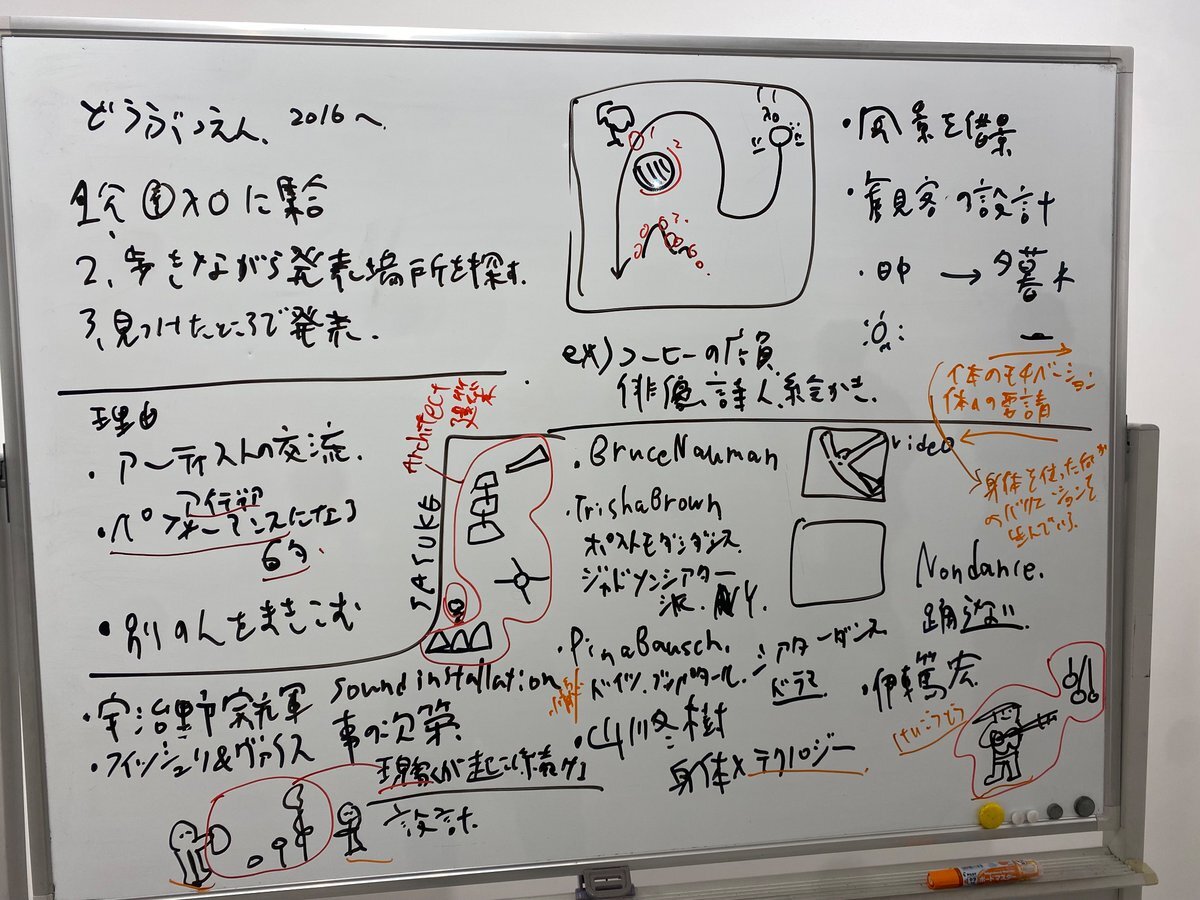 どうぶつえん 2016へ
入口に集合
2、歩きながら発表場所を探す.
3、見つけたところで発表.
理由
・アーティストの交流.
アイデア
・パフォーマンスになる
・別の人をまきこむ
1
2
3.
・風景を借景
・観客の設計
・日中 → 夕暮れ
ex) コーヒーの店員
俳優、詩人、絵かき.
Architect
建築家
SASUKE
・Bruce Nauman
video
・Trisha Brown
ポストモダンダンス
ジャドソンシアター
派. NY.
・Pina Bausch.
シアターダンス
ドラマ
・山川冬樹
身体×テクノロジー
体のモチベーション
体への要請
Nondance.
踊らない
・伊東篤宏
・宇治野宗輝
sound installation
・フィッシュリ&ヴァイス
事の次第.
現象が起こり続ける
設計.
ボードマスター